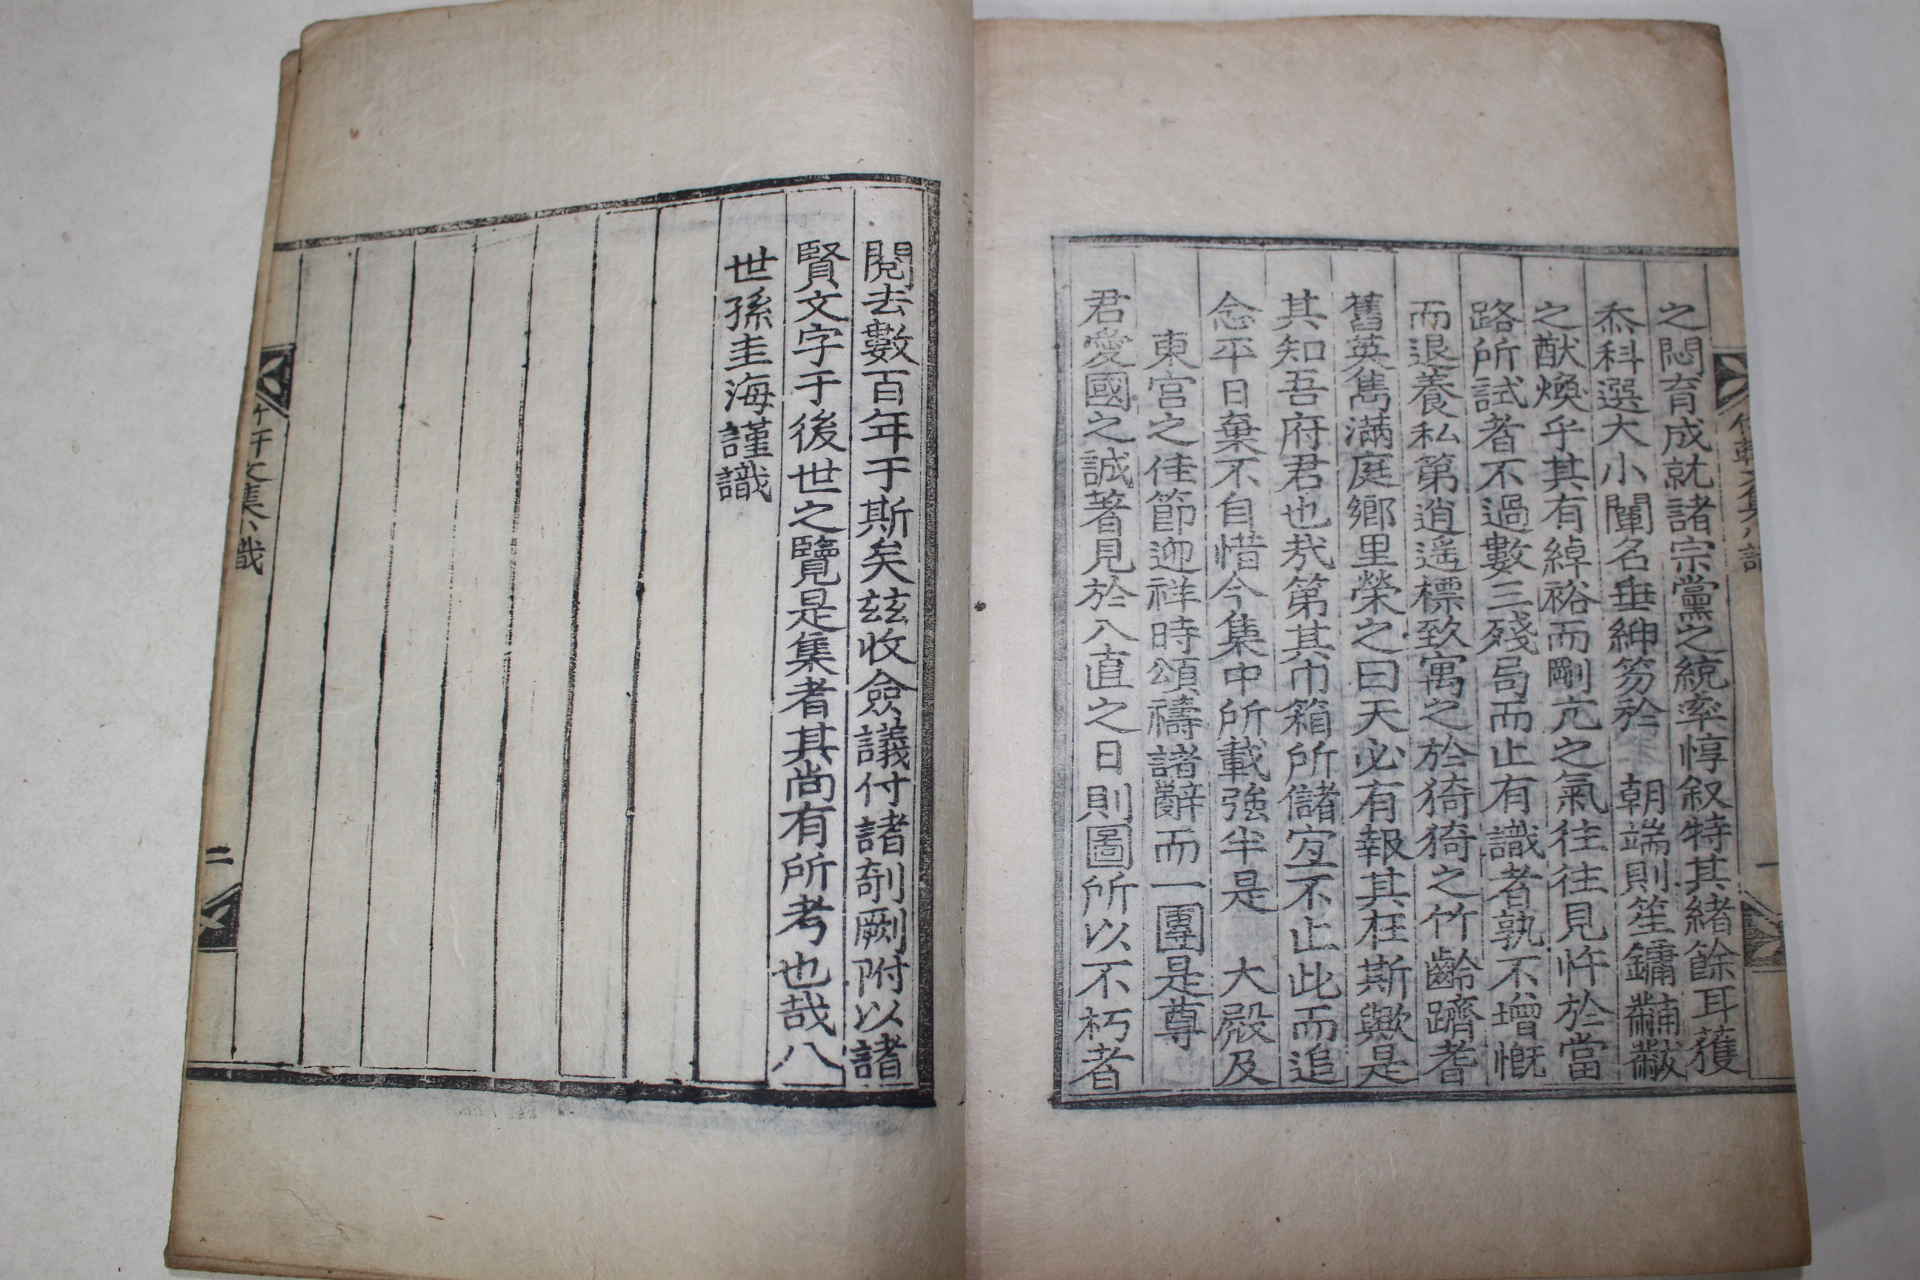 之悶育成就諸宗黨之統率惇叙特其緒餘耳獲
忝科選大小闈名垂紳笏於 朝端則笙鏞黼黻
之猷煥乎其有綽裕而剛亢之氣往往見忤於當
路所試者不過數三殘局而止有識者孰不增慨
而退養私第逍遥標致寓之於猗猗之竹齡躋耆
舊英雋滿庭鄉里榮之曰天必有報其在斯歟是
其知吾府君也㢤第其巾箱所儲宜不止此而追
念平日棄不自惜今集中所載強半是 大殿及
東宮之佳節迎祥時頌禱諸辭而一團是尊
君愛國之誠著見於入直之日則圖所以不朽者
閱去數百年于斯矣玆收僉議付諸剞劂附以諸
賢文字于後世之覽是集者其尚有所考也哉八
世孫圭海謹識
竹軒文集 識
一
竹干文集 識
二